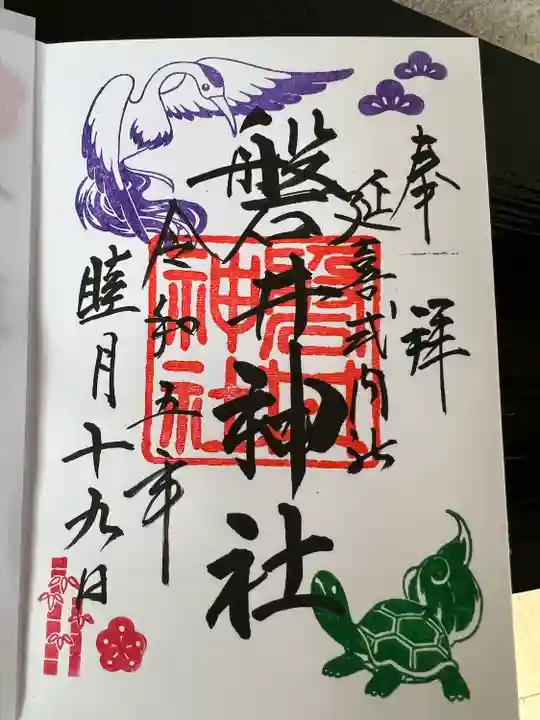 奉拝
延喜式内社
磐井神社
磐井神社
令和五年
睦月十九日